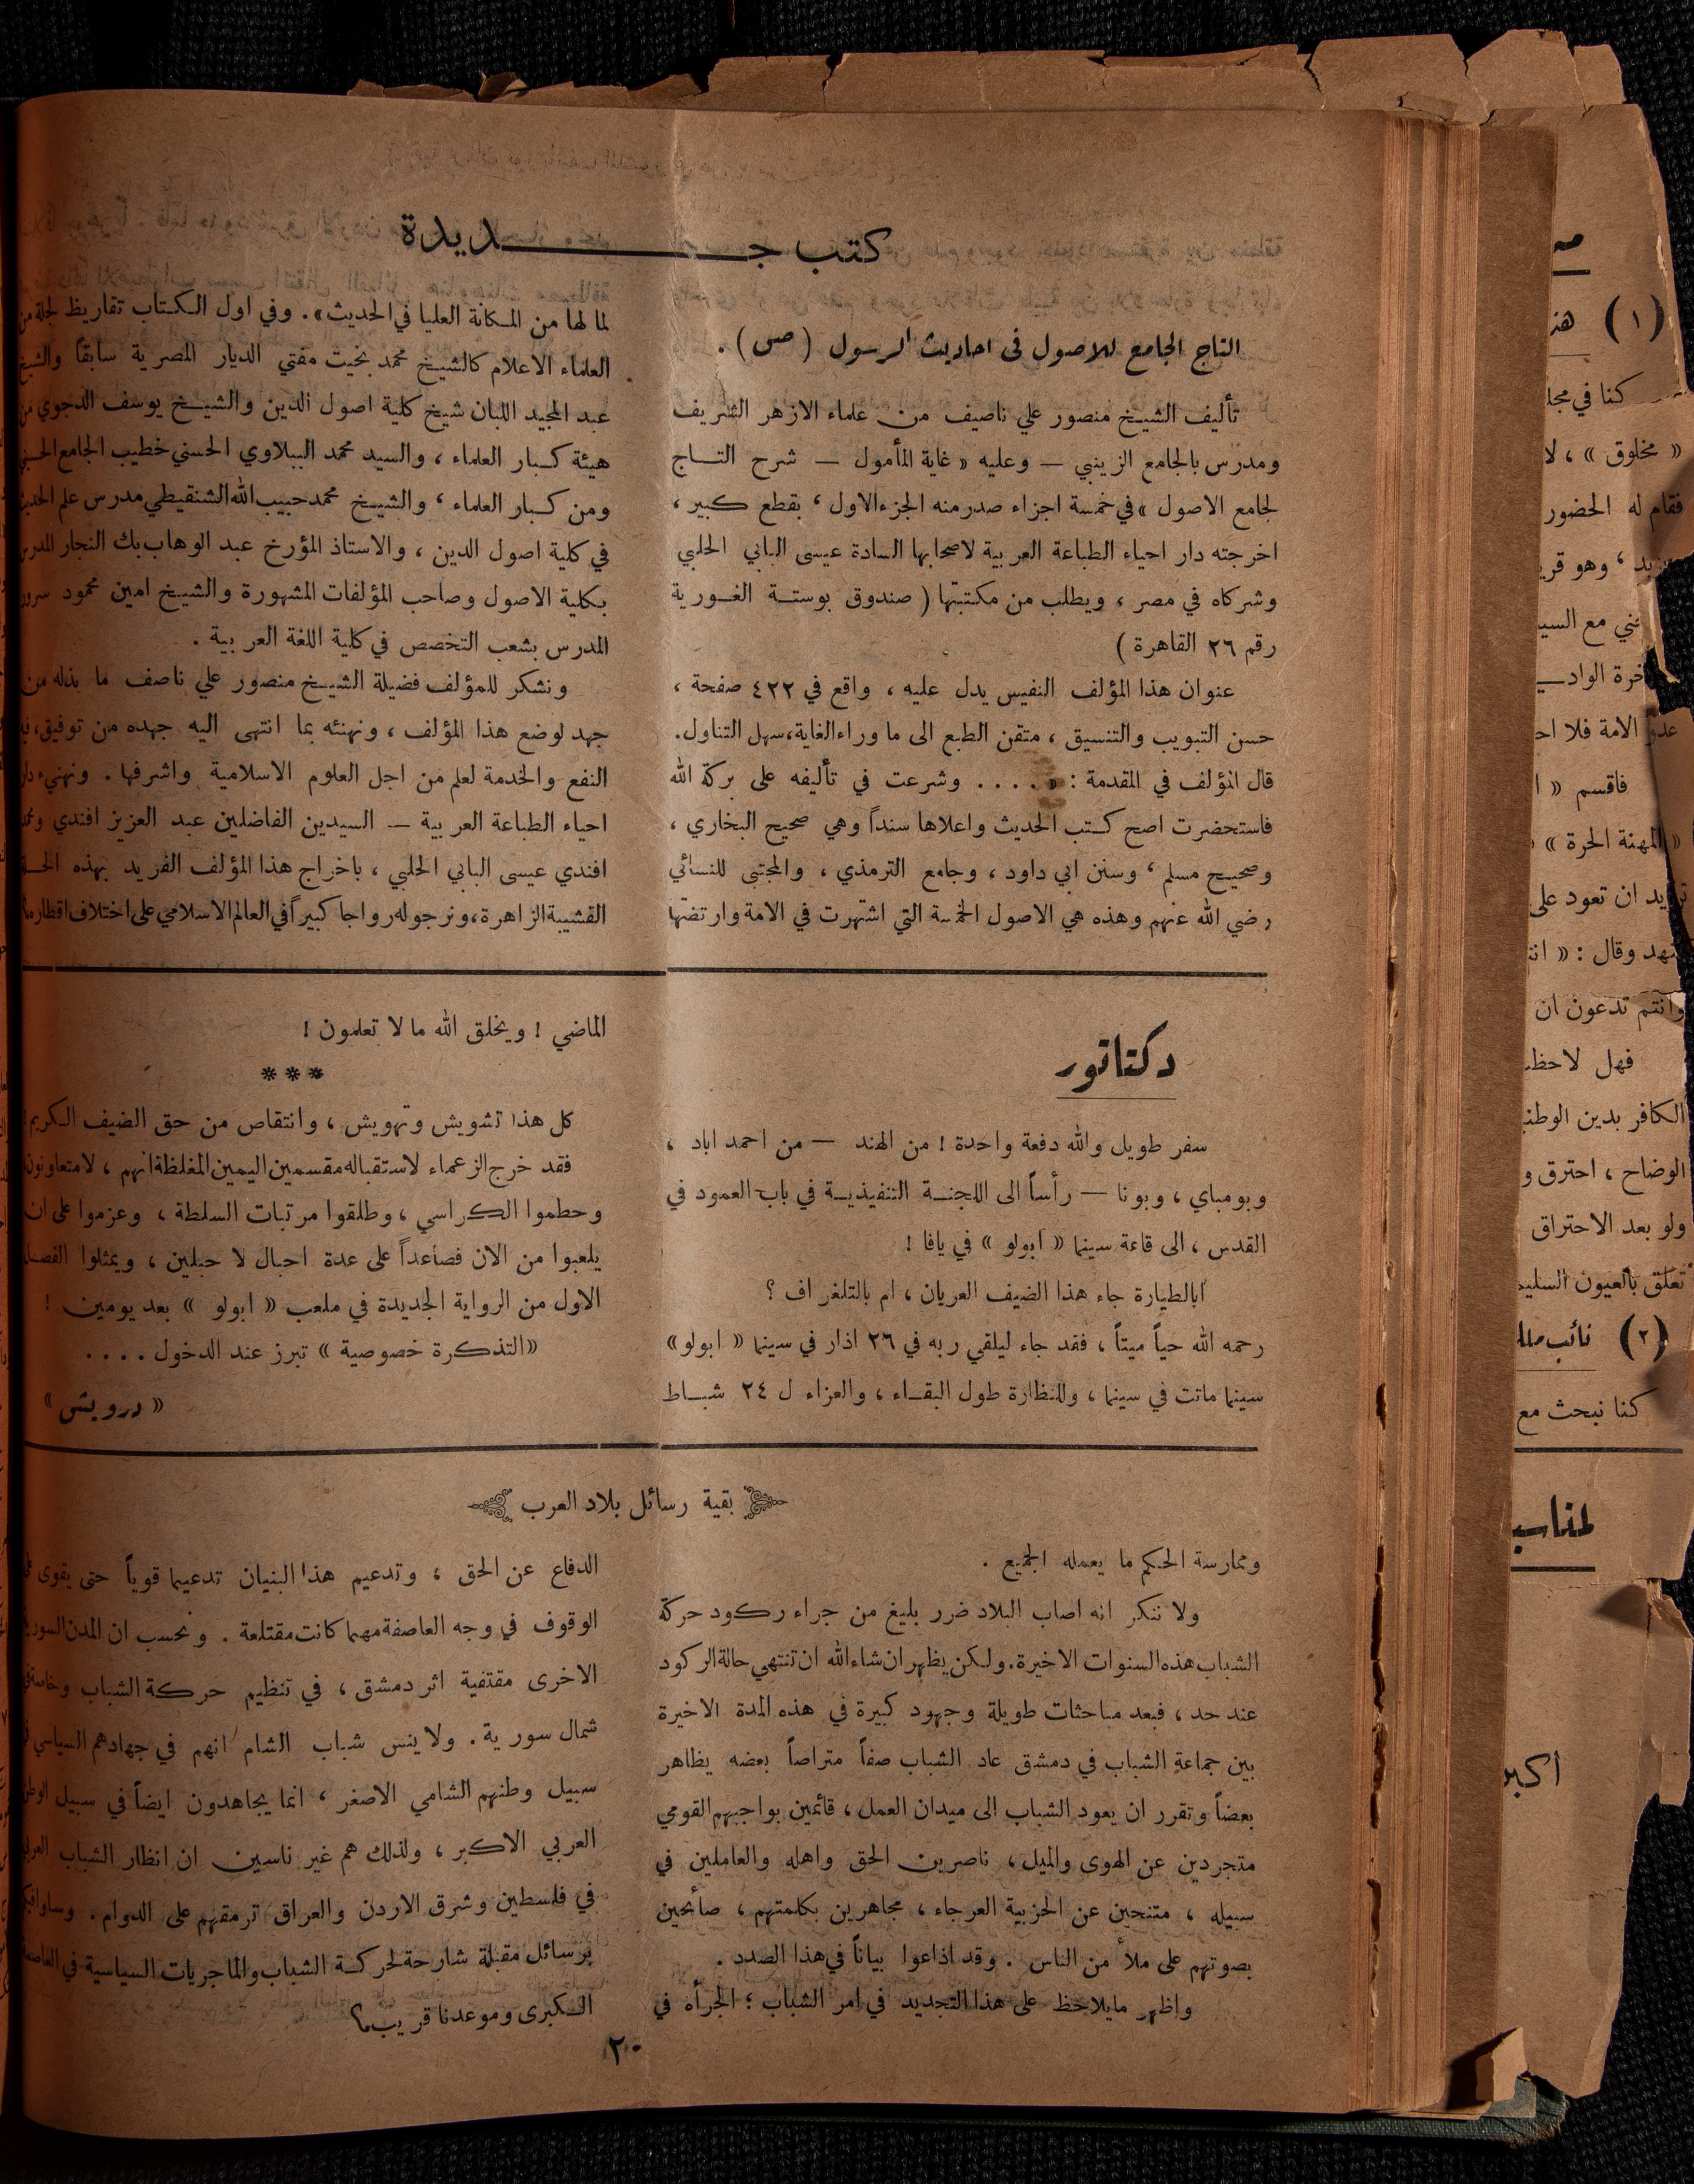 كتب جـــديدة
التاج الجامع للاصول في احاديث الرسول (ص) .
تأليف الشيخ منصور علي ناصيف من علماء الازهر الشريف
ومدرس بالجامع الزينبي — وعليه « غاية المأمول — شرح التـاج
لجامع الاصول » في خمسة اجزاء صدر منه الجزء الاول ، بقطع كبير ،
اخرجته دار احياء الطباعة العربية لاصحابها السادة عيسى البابي الحلبي
وشركاه في مصر ، ويطلب من مكتبتها ( صندوق بوستة الغورية
رقم ٢٦ القاهرة )
عنوان هذا المؤلف النفيس يدل عليه ، واقع في ٤٢٢ صفحة ،
حسن التبويب والتنسيق ، متقن الطبع الى ما وراء الغاية ، سهل التناول .
قال المؤلف في المقدمة : « . . . . وشرعت في تأليفه على بركة الله
فاستحضرت اصح كتب الحديث واعلاها سنداً وهي صحيح البخاري ،
وصحيح مسلم ، وسنن ابي داود ، وجامع الترمذي ، والمجتبى للنسائي
رضي الله عنهم وهذه هي الاصول الخمسة التي اشتهرت في الامة وارتضتها
لما لها من المكانة العليا في الحديث » . وفي اول الكتاب تقاريظ لجلة من
العلماء الاعلام كالشيخ محمد بخيت مفتي الديار المصرية سابقاً والشيخ
عبد المجيد اللبان شيخ كلية اصول الدين والشيخ يوسف الدجوي من
هيئة كبار العلماء ، والسيد محمد الببلاوي الحسني خطيب الجامع
ومن كبار العلماء ، والشيخ محمد حبيب الله الشنقيطي مدرس علم الحديث
في كلية اصول الدين ، والاستاذ المؤرخ عبد الوهاب بك النجار المدرس
بكلية الاصول وصاحب المؤلفات المشهورة والشيخ امين محمود سرور
المدرس بشعب التخصص في كلية اللغة العربية .
ونشكر للمؤلف فضيلة الشيخ منصور علي ناصف ما بذله من
جهد لوضع هذا المؤلف ، ونهنئه بما انتهى اليه جهده من توفيق ،
النفع والخدمة لعلم من اجل العلوم الاسلامية واشرفها . ونهنيء دار
احياء الطباعة العربية — السيدين الفاضلين عبد العزيز افندي ومحمد
افندي عيسى البابي الحلبي ، باخراج هذا المؤلف الفريد بهذه الحـلة
القشيبة الزاهرة ، ونرجو له رواجا كبيراً في العالم الاسلامي على اختلاف اقطاره
دكتاتور
سفر طويل والله دفعة واحدة ! من الهند — من احمد اباد ،
وبومباي ، وبونا — رأساً الى اللجنة التنفيذية في باب العمود في
القدس ، الى قاعة سينما « ابولو » في يافا !
أبالطيارة جاء هذا الضيف العريان ، ام بالتلغراف ؟
رحمه الله حياً ميتاً ، فقد جاء ليلقي ربه في ٢٦ اذار في سينما « ابولو »
سينما ماتت في سينما ، وللنظارة طول البقاء ، والعزاء ل ٢٤ شباط
الماضي ! ويخلق الله ما لا تعلمون !
***
كل هذا تشويش وتهويش ، وانتقاص من حق الضيف الكريم !
فقد خرج الزعماء لاستقباله مقسمين اليمين المغلظة انهم ، لا متعاونون ،
وحطموا الكراسي ، وطلقوا مرتبات السلطة ، وعزموا على ان
يلعبوا من الان فصاعداً على عدة احبال لا حبلين ، ويمثلوا الفصل
الاول من الرواية الجديدة في ملعب « ابولو » بعد يومين !
« التذكرة خصوصية » تبرز عند الدخول . . . .
« درويش »
بقية رسائل بلاد العرب
وممارسة الحكم ما يعمله الجميع .
ولا ننكر انه اصاب البلاد ضرر بليغ من جراء ركود حركة
الشباب هذه السنوات الاخيرة . ولكن يظهر ان شاء الله ان تنتهي حالة الركود
عند حد ، فبعد مباحثات طويلة وجهود كبيرة في هذه المدة الاخيرة
بين جماعة الشباب في دمشق عاد الشباب صفاً متراصاً بعضه يظاهر
بعضاً وتقرر ان يعود الشباب الى ميدان العمل ، قائمين بواجبهم القومي
متجردين عن الهوى والميل ، ناصرين الحق واهله والعاملين في
سبيله ، متنحين عن الحزبية العرجاء ، مجاهرين بكلمتهم ، صائحين
بصوتهم على ملأ من الناس . وقد اذاعوا بياناً في هذا الصدد .
واظهر ما يلاحظ على هذا التجديد في امر الشباب ؛ الجرأة في
الدفاع عن الحق ، وتدعيم هذا البنيان تدعيما قوياً حتى يقوى على
الوقوف في وجه العاصفة مهما كانت مقتلعة . ونحسب ان المدن السورية
الاخرى مقتفية اثر دمشق ، في تنظيم حركة الشباب وخاصة في
شمال سورية . ولا ينس شباب الشام انهم في جهادهم السياسي في
سبيل وطنهم الشامي الاصغر ، انما يجاهدون ايضاً في سبيل الوطن
العربي الاكبر ، ولذلك هم غير ناسين ان انظار الشباب العربي
في فلسطين وشرق الاردن والعراق ترمقهم على الدوام . وساوافيكم
برسائل مقبلة شارحة لحركة الشباب والماجريات السياسية في العاصمة
الكبرى وموعدنا قريب ؟
٢٠
(١) هذ
كنا في مجلـ
« مخلوق » ، لا
فقام له الحضور
، وهو قريـ
ـني مع السيـ
عدو الامة فلا احـ
فاقسم « ا
« المهنة الحرة »
تريد ان تعود على
ـنهد وقال : « انتـ
وانتم تدعون ان
فهل لاحظـ
الكافر بدين الوطنـ
الوضاح ، احترق و
ولو بعد الاحتراق
تعلق بالعيون السليمـ
(٢) نائب
كنا نبحث مع
لمناسبـ
أكبر